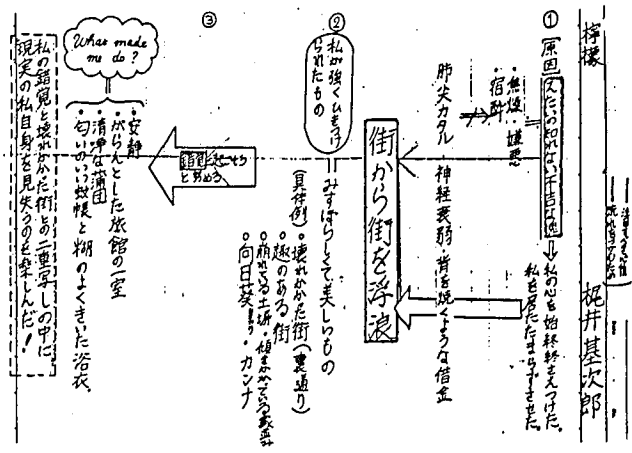 檸檬
梶井基次郎
①
原因
えたいの知れない不吉な塊
⇒私の心を始終圧えつけた。
私を居たたまらずさせた。
・焦燥・嫌悪
・宿酔
肺尖カタル・神経衰弱・背を焼くような借金
街から街を浮浪
②
私が強くひきつけ
られたもの
みすぼらしくて美しいもの
(具体例)・壊れかかった街(裏通り)
・趣のある街
・崩れている土塀・傾きかかっている家並み
・向日葵・カンナ
③
錯覚を起こそう
と努める
What made
me do?
・安静
・がらんとした旅館の一室
・清浄な蒲団
・匂いのいい蚊帳と糊のよくきいた浴衣。
私の錯覚と壊れかかった街との二重写しの中に
現実の私自身を見失うのを楽しんだ!